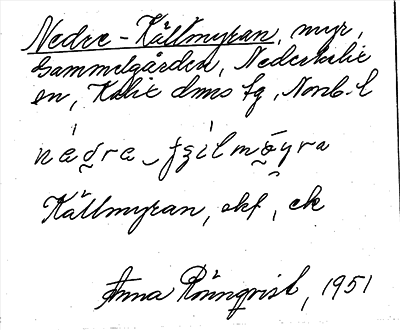 Nedre-Källmyran, myr,
Gammelgården, Nederkalix
sn, Kalix dms tg, Norrb. l
Källmyran, ekf, ek
Anna Rönnqvist, 1951